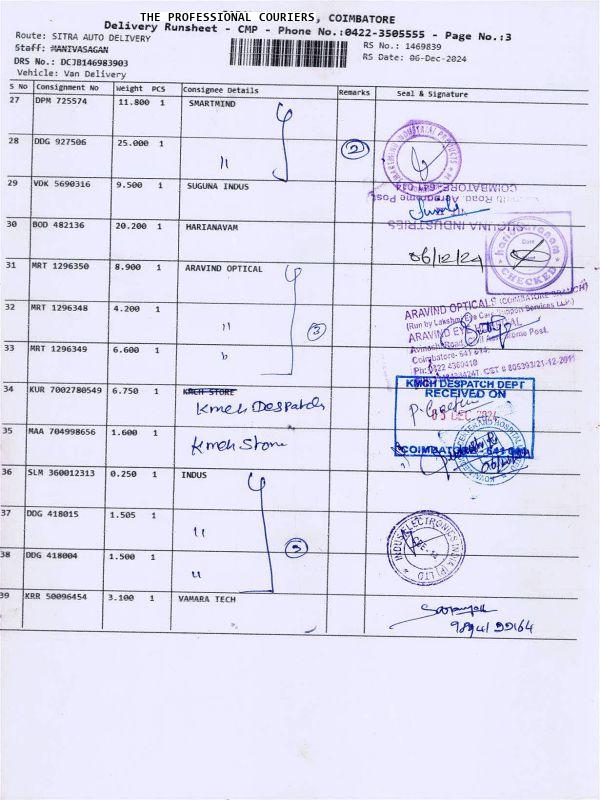 THE PROFESSIONAL COURIERS, COIMBATORE
Delivery Runsheet - CMP - Phone No.:0422-3505555 - Page No.:3
Route: SITRA AUTO DELIVERY
Staff: MANIVASAGAN
RS No.: 1469839
DRS No.: DCJB146983903
RS Date: 06-Dec-2024
Vehicle: Van Delivery
S No Consignment No Weight PCS Consignee Details Remarks Seal & Signature
27 DPM 725574 11.800 1 SMARTMIND
28 DDG 927506 25.000 1 11 2
29 VDK 5690316 9.500 1 SUGUNA INDUS
COIMBATORE- 641 014
SUGUNA INDUSTRIES
30 BOD 482136 20.200 1 HARIANAVAM
06/12/24
CHECKED
31 MRT 1296350 8.900 1 ARAVIND OPTICAL
32 MRT 1296348 4.200 1 11 3
ARAVIND OPTICALS (COIMBATORE BRANCH)
33 MRT 1296349 6.600 1
Coimbatore- 641 014.
Ph:0422 4360410
34 KUR 7002780549 6.750 1 KMCH STORE
Kmch Despatch
KMCH DESPATCH DEPT
RECEIVED ON
DEC 2024
35 MAA 704998656 1.600 1 Kmch Store
COIMBATORE - 641 014
36 SLM 360012313 0.250 1 INDUS
37 DDG 418015 1.505 1 11
38 DDG 418004 1.500 1 11
INDUS ELECTRONICS INDIA (P) LTD
39 KRR 50096454 3.100 1 VAMARA TECH